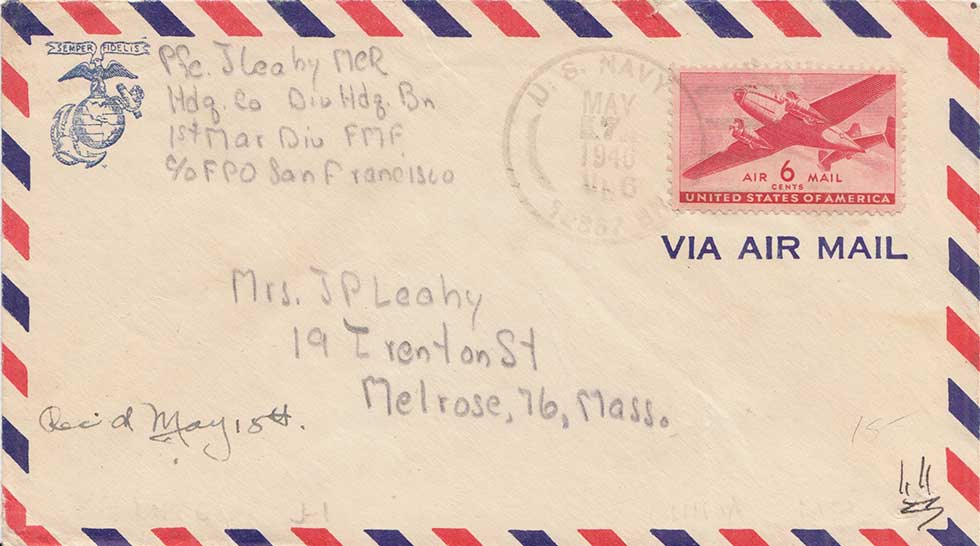 SEMPER FIDELIS
Pfc. J Leahy MCR
Hdq. Co Div Hdq. Bn
1st Mar Div FMF
c/o FPO San Francisco
U.S. NAVY
MAY
1946
AIR 6 MAIL
CENTS
UNITED STATES OF AMERICA
VIA AIR MAIL
Mrs. J P Leahy
19 Trenton St
Melrose, 76, Mass.
Rec'd May 15th.
15